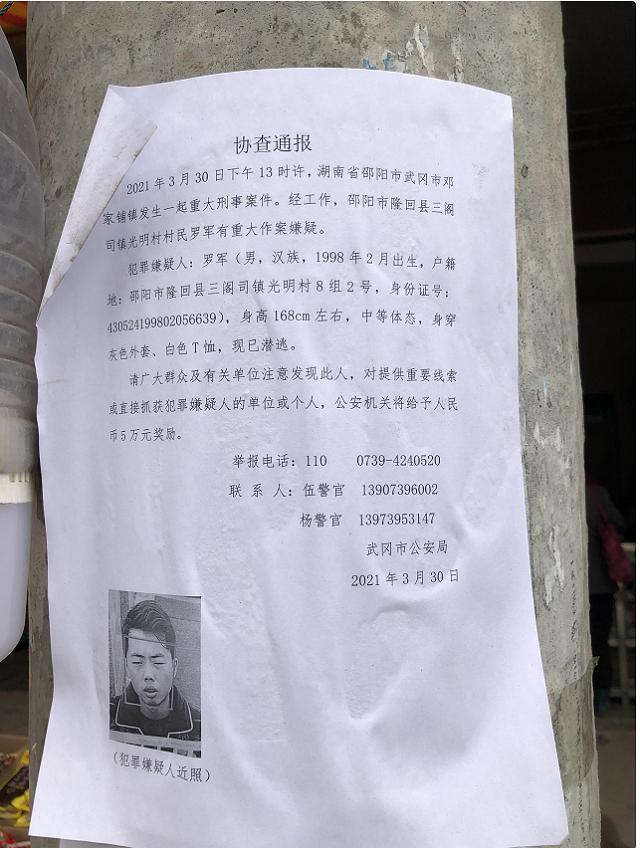 协查通报
2021年3月30日下午13时许，湖南省邵阳市武冈市邓
家铺镇发生一起重大刑事案件。经工作，邵阳市隆回县三阁
司镇光明村村民罗军有重大作案嫌疑。
犯罪嫌疑人：罗军（男，汉族，1998年2月出生，户籍
地：邵阳市隆回县三阁司镇光明村8组2号，身份证号：
430524199802056639），身高168cm左右，中等体态，身穿
灰色外套、白色T恤，现已潜逃。
请广大群众及有关单位注意发现此人，对提供重要线索
或直接抓获犯罪嫌疑人的单位或个人，公安机关将给予人民
币5万元奖励。
举报电话：110 0739-4240520
联系人：伍警官 13907396002
杨警官 13973953147
武冈市公安局
2021年3月30日
（犯罪嫌疑人近照）